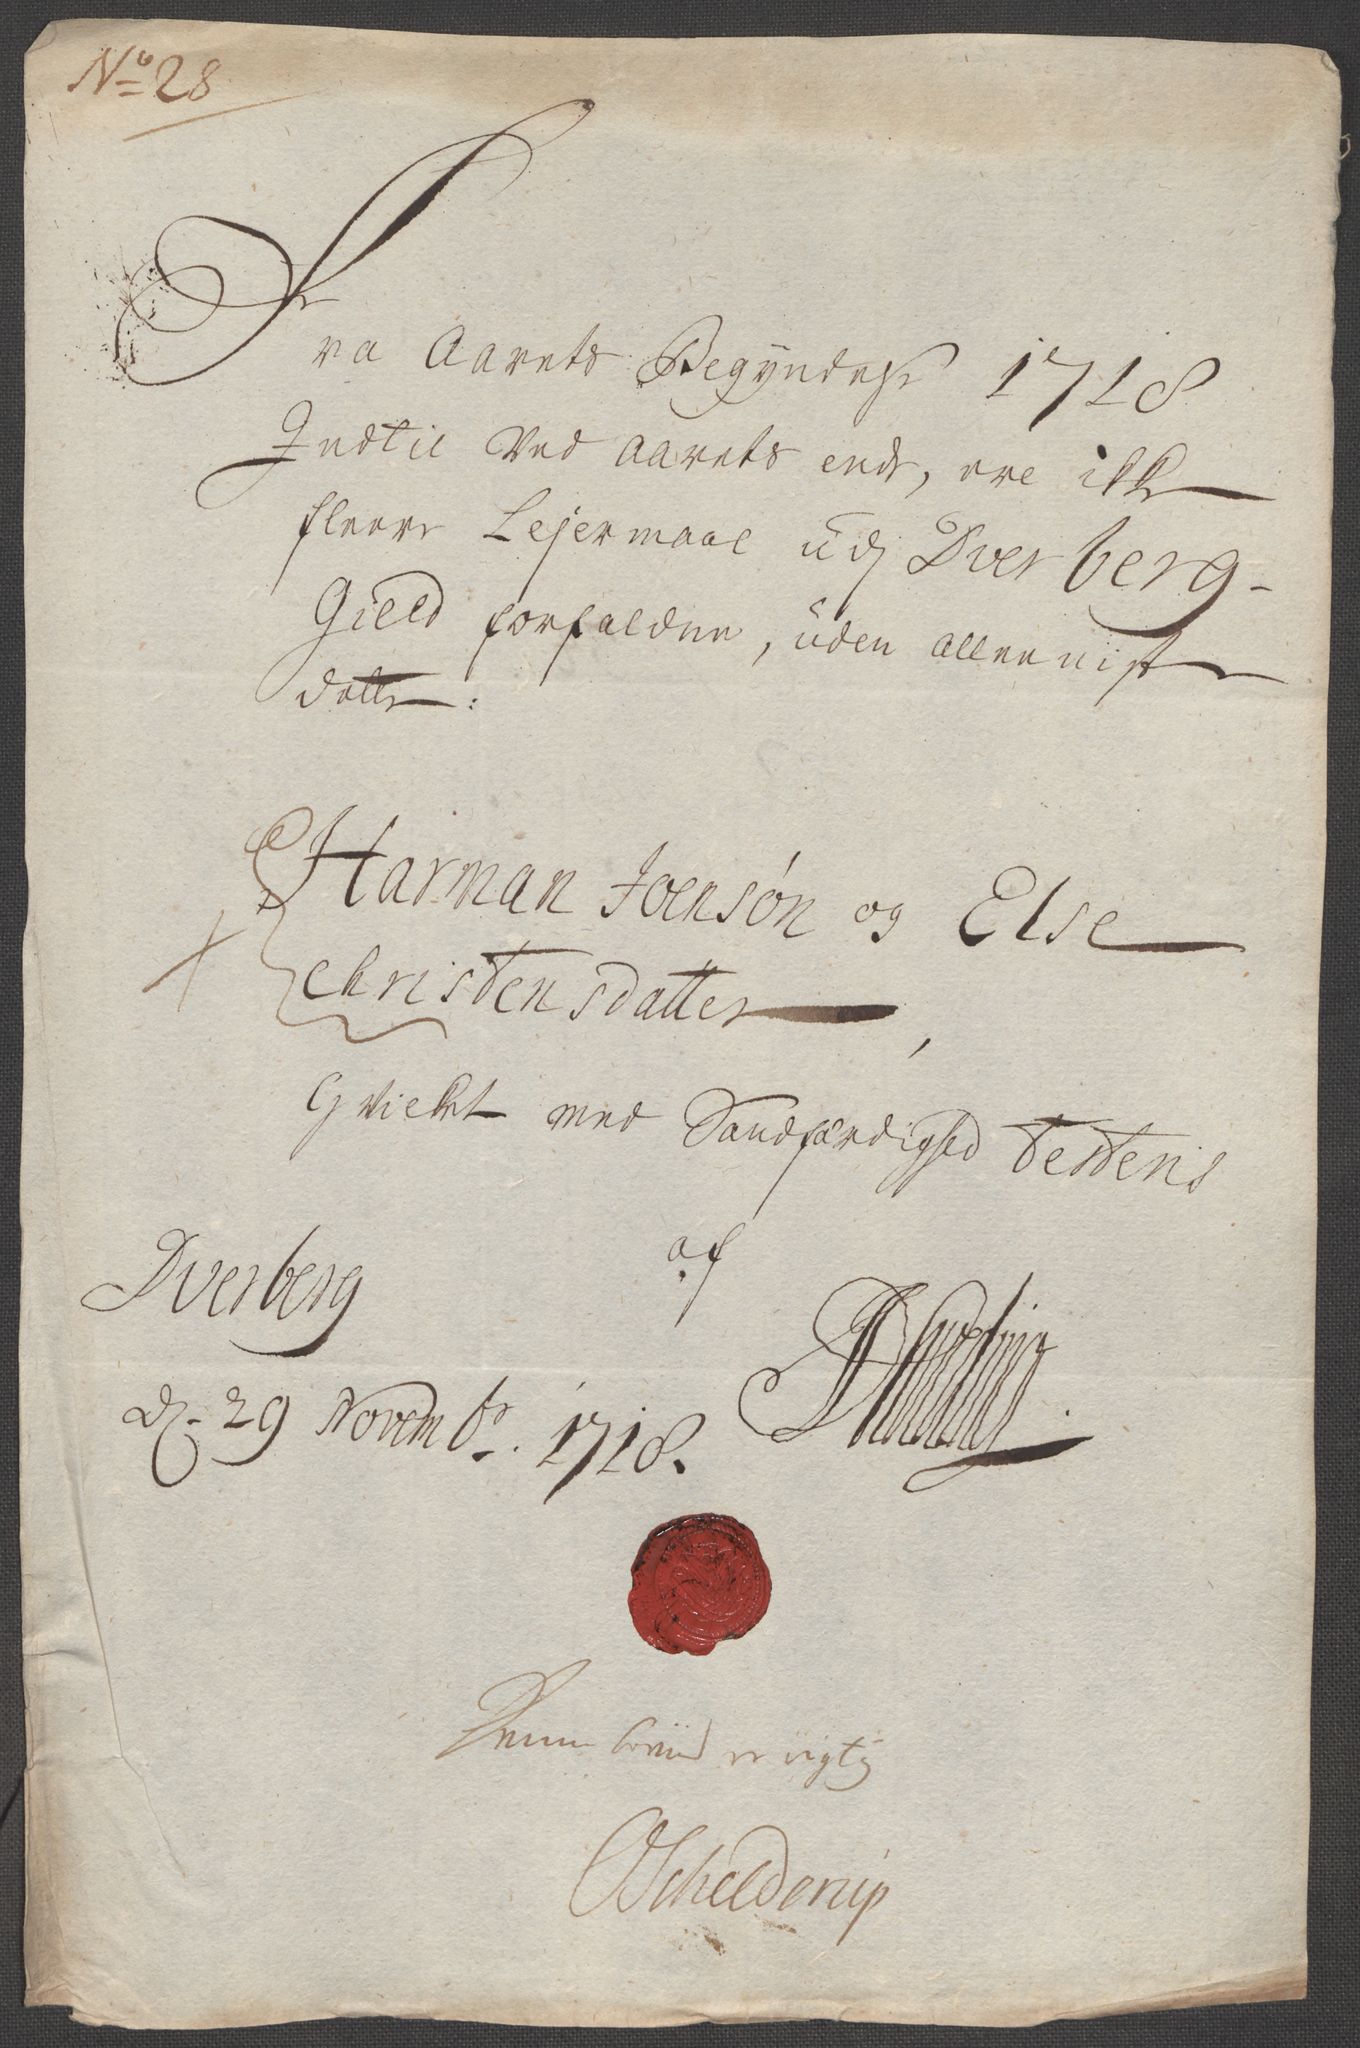 No 28
Fra Aarets Begÿndelse 1718
Indtil Ved Aarets ende, ere ikke
fleere Lejermaal udj Dverberg-
Gield forfaldne, uden alleeniste
dette:
Harman Joensøn og Else
Christensdatter,
Hvilket med Sandfærdighed Testeris
af
Dverberg
d. 29 Novembr. 1718.
Denne er rigtig
Schelderup